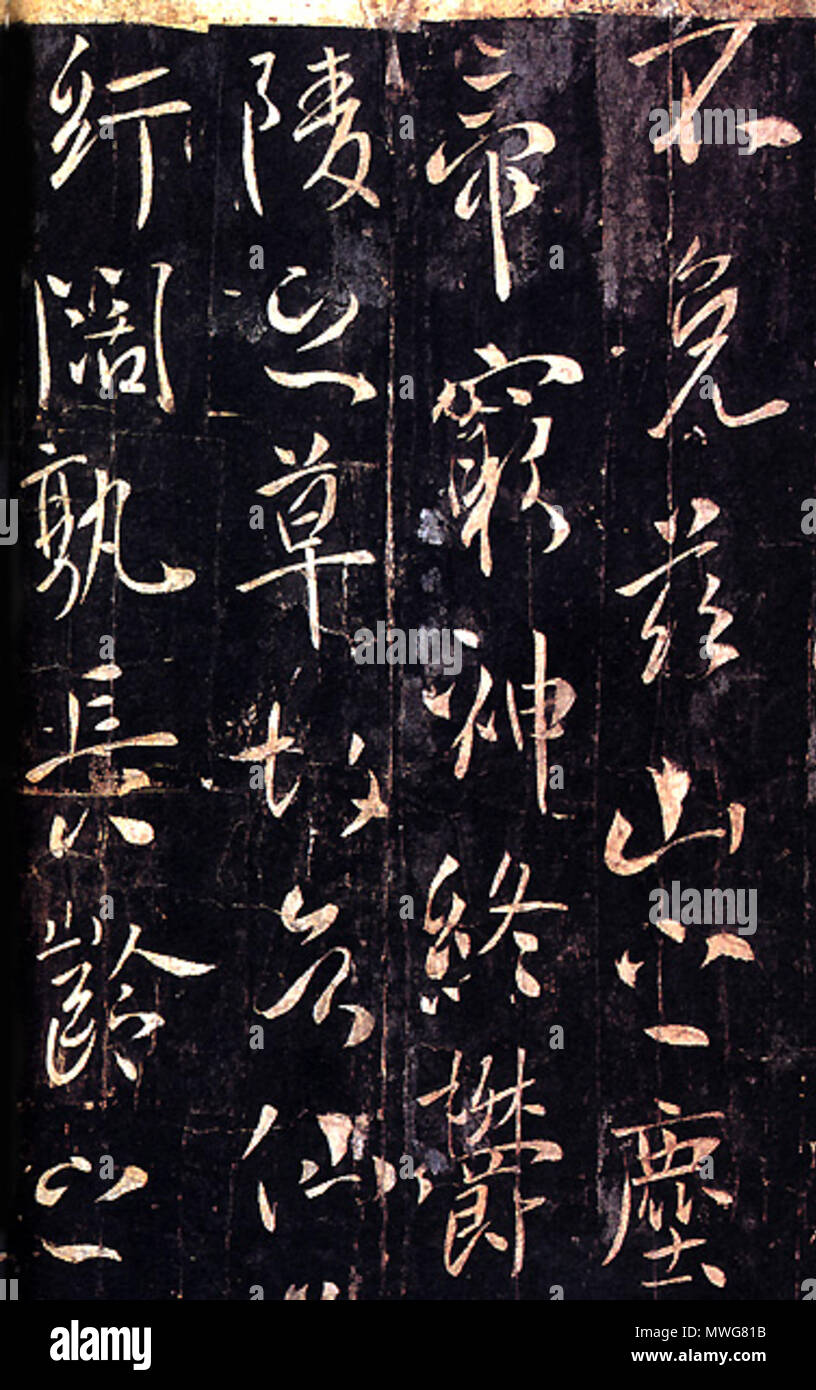 不免茲山之塵
帝窮神終欝
陵之草故知仙
紆闊孰長齡之
alamy
Image ID: MWG81B
www.alamy.com